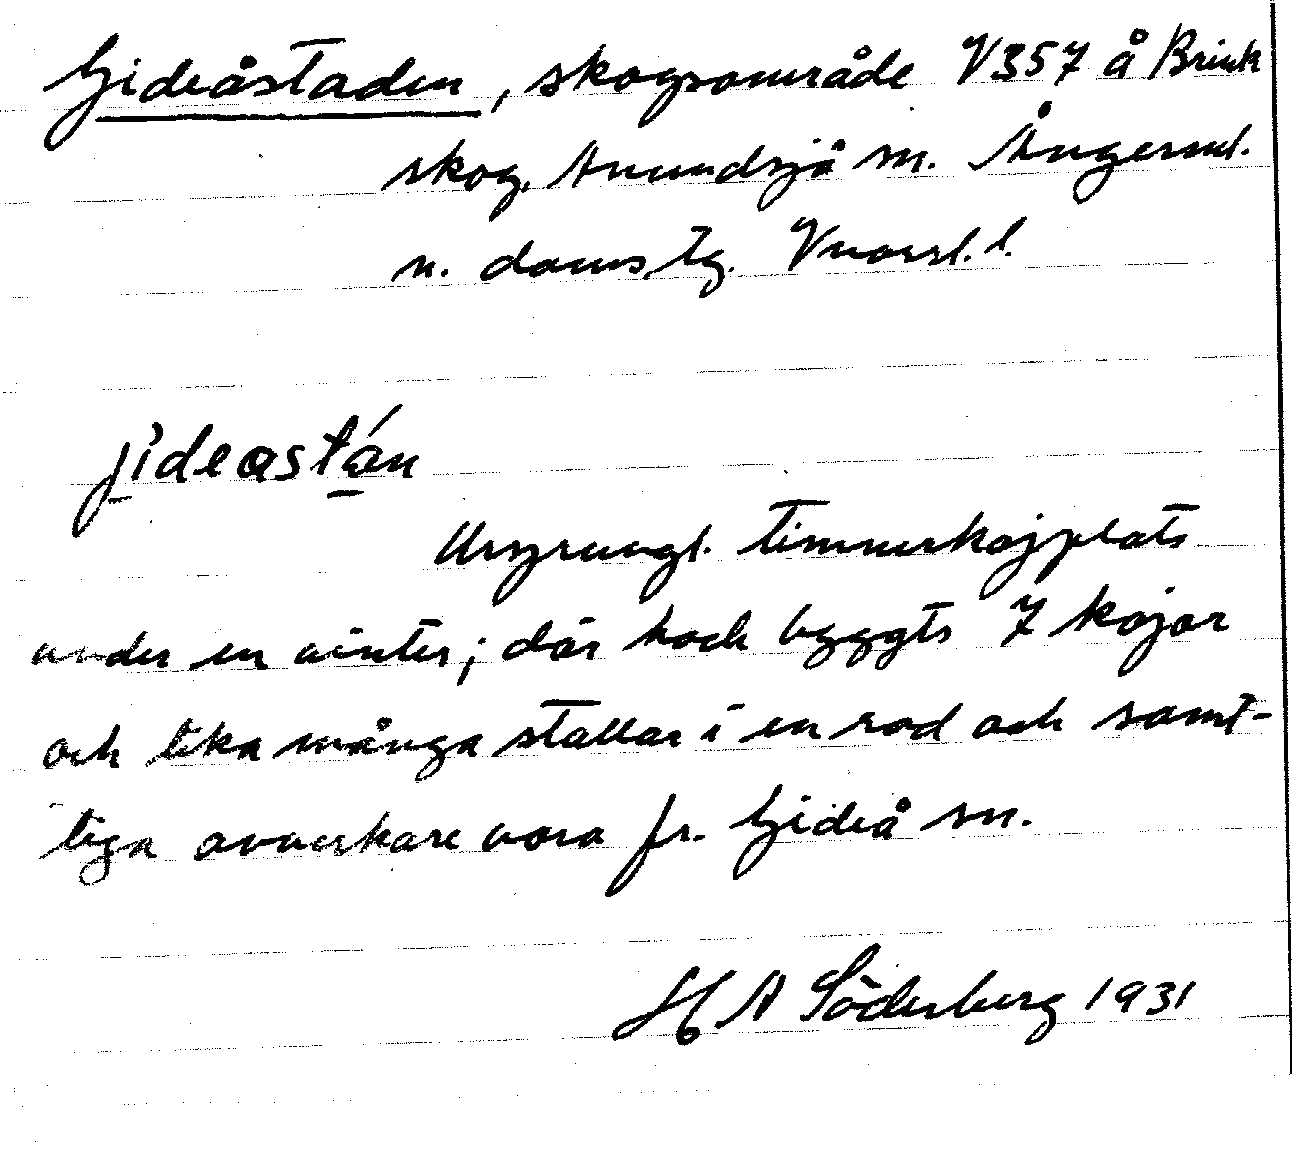 Gideåstaden, skogsområde V357 å Brink
skog, Anundsjö sn. Ångerml.
n. doms, tg. Vnorrl. l.
jideastán
Ursprungl. timmerkojplats
under en vinter; där hade byggts 7 kojor
och lika många stallar i en rad och samt-
liga avverkare vora fr. Gideå sn.
H A Söderberg 1931